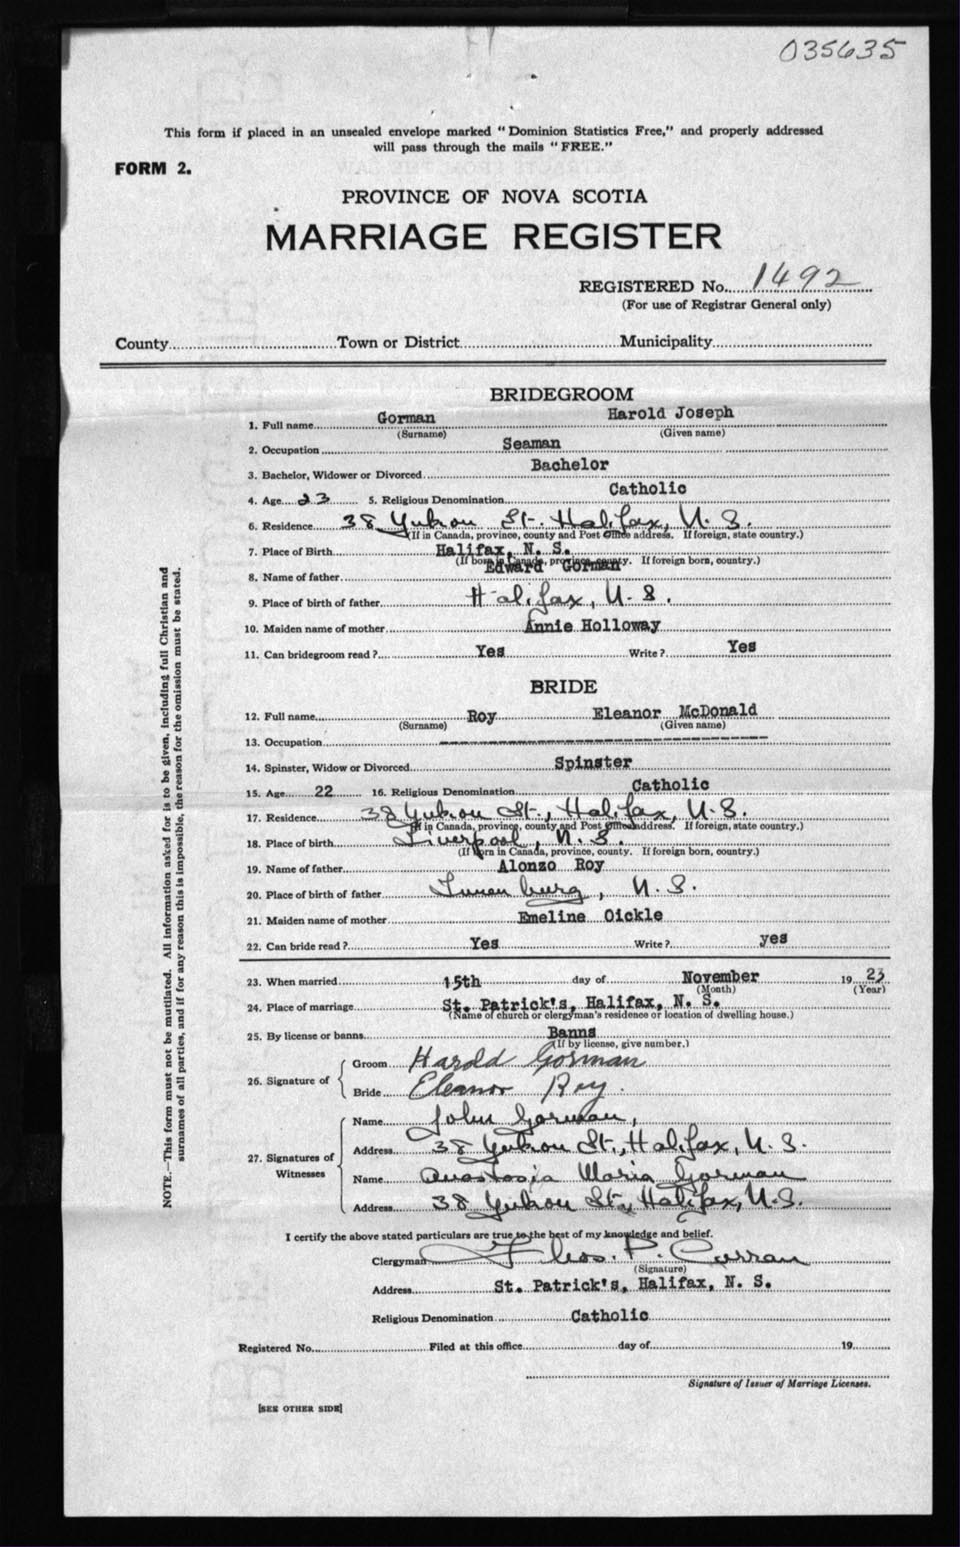 035635
This form if placed in an unsealed envelope marked "Dominion Statistics Free," and properly addressed
will pass through the mails "FREE."
FORM 2.
PROVINCE OF NOVA SCOTIA
MARRIAGE REGISTER
REGISTERED No. 1492
(For use of Registrar General only)
County Town or District Municipality
BRIDEGROOM
1. Full name Gorman Harold Joseph
(Surname) (Given name)
2. Occupation Seaman
3. Bachelor, Widower or Divorced Bachelor
4. Age 23 5. Religious Denomination Catholic
6. Residence 38 Yukon St. Halifax, N. S.
(If in Canada, province, county and Post Office address. If foreign, state country.)
7. Place of Birth Halifax, N. S.
(If born in Canada, province, county. If foreign born, country.)
8. Name of father Edward Gorman
9. Place of birth of father Halifax, N. S.
10. Maiden name of mother Annie Holloway
11. Can bridegroom read? Yes Write? Yes
BRIDE
12. Full name Roy Eleanor McDonald
(Surname) (Given name)
13. Occupation
14. Spinster, Widow or Divorced Spinster
15. Age 22 16. Religious Denomination Catholic
17. Residence 38 Yukon St., Halifax, N. S.
(If in Canada, province, county and Post Office address. If foreign, state country.)
18. Place of birth Liverpool, N. S.
(If born in Canada, province, county. If foreign born, country.)
19. Name of father Alonzo Roy
20. Place of birth of father Lunenburg, N. S.
21. Maiden name of mother Emeline Oickle
22. Can bride read? Yes Write? yes
23. When married 15th day of November 19 23
(Month) (Year)
24. Place of marriage St. Patrick's, Halifax, N. S.
(Name of church or clergyman's residence or location of dwelling house.)
25. By license or banns Banns
(If by license, give number.)
26. Signature of
Groom Harold Gorman
Bride Eleanor Roy.
27. Signatures of Witnesses
Name John Gorman,
Address 38 Yukon St., Halifax, N. S.
Name Anastasia Maria Gorman
Address 38 Yukon St., Halifax, N. S.
I certify the above stated particulars are true to the best of my knowledge and belief.
Clergyman Thos. P. Curran
(Signature)
Address St. Patrick's, Halifax, N. S.
Religious Denomination Catholic
Registered No. Filed at this office day of 19
Signature of Issuer of Marriage Licenses.
[SEE OTHER SIDE]
NOTE.—This form must not be mutilated. All information asked for is to be given, including full Christian and
surnames of all parties, and if for any reason this is impossible, the reason for the omission must be stated.